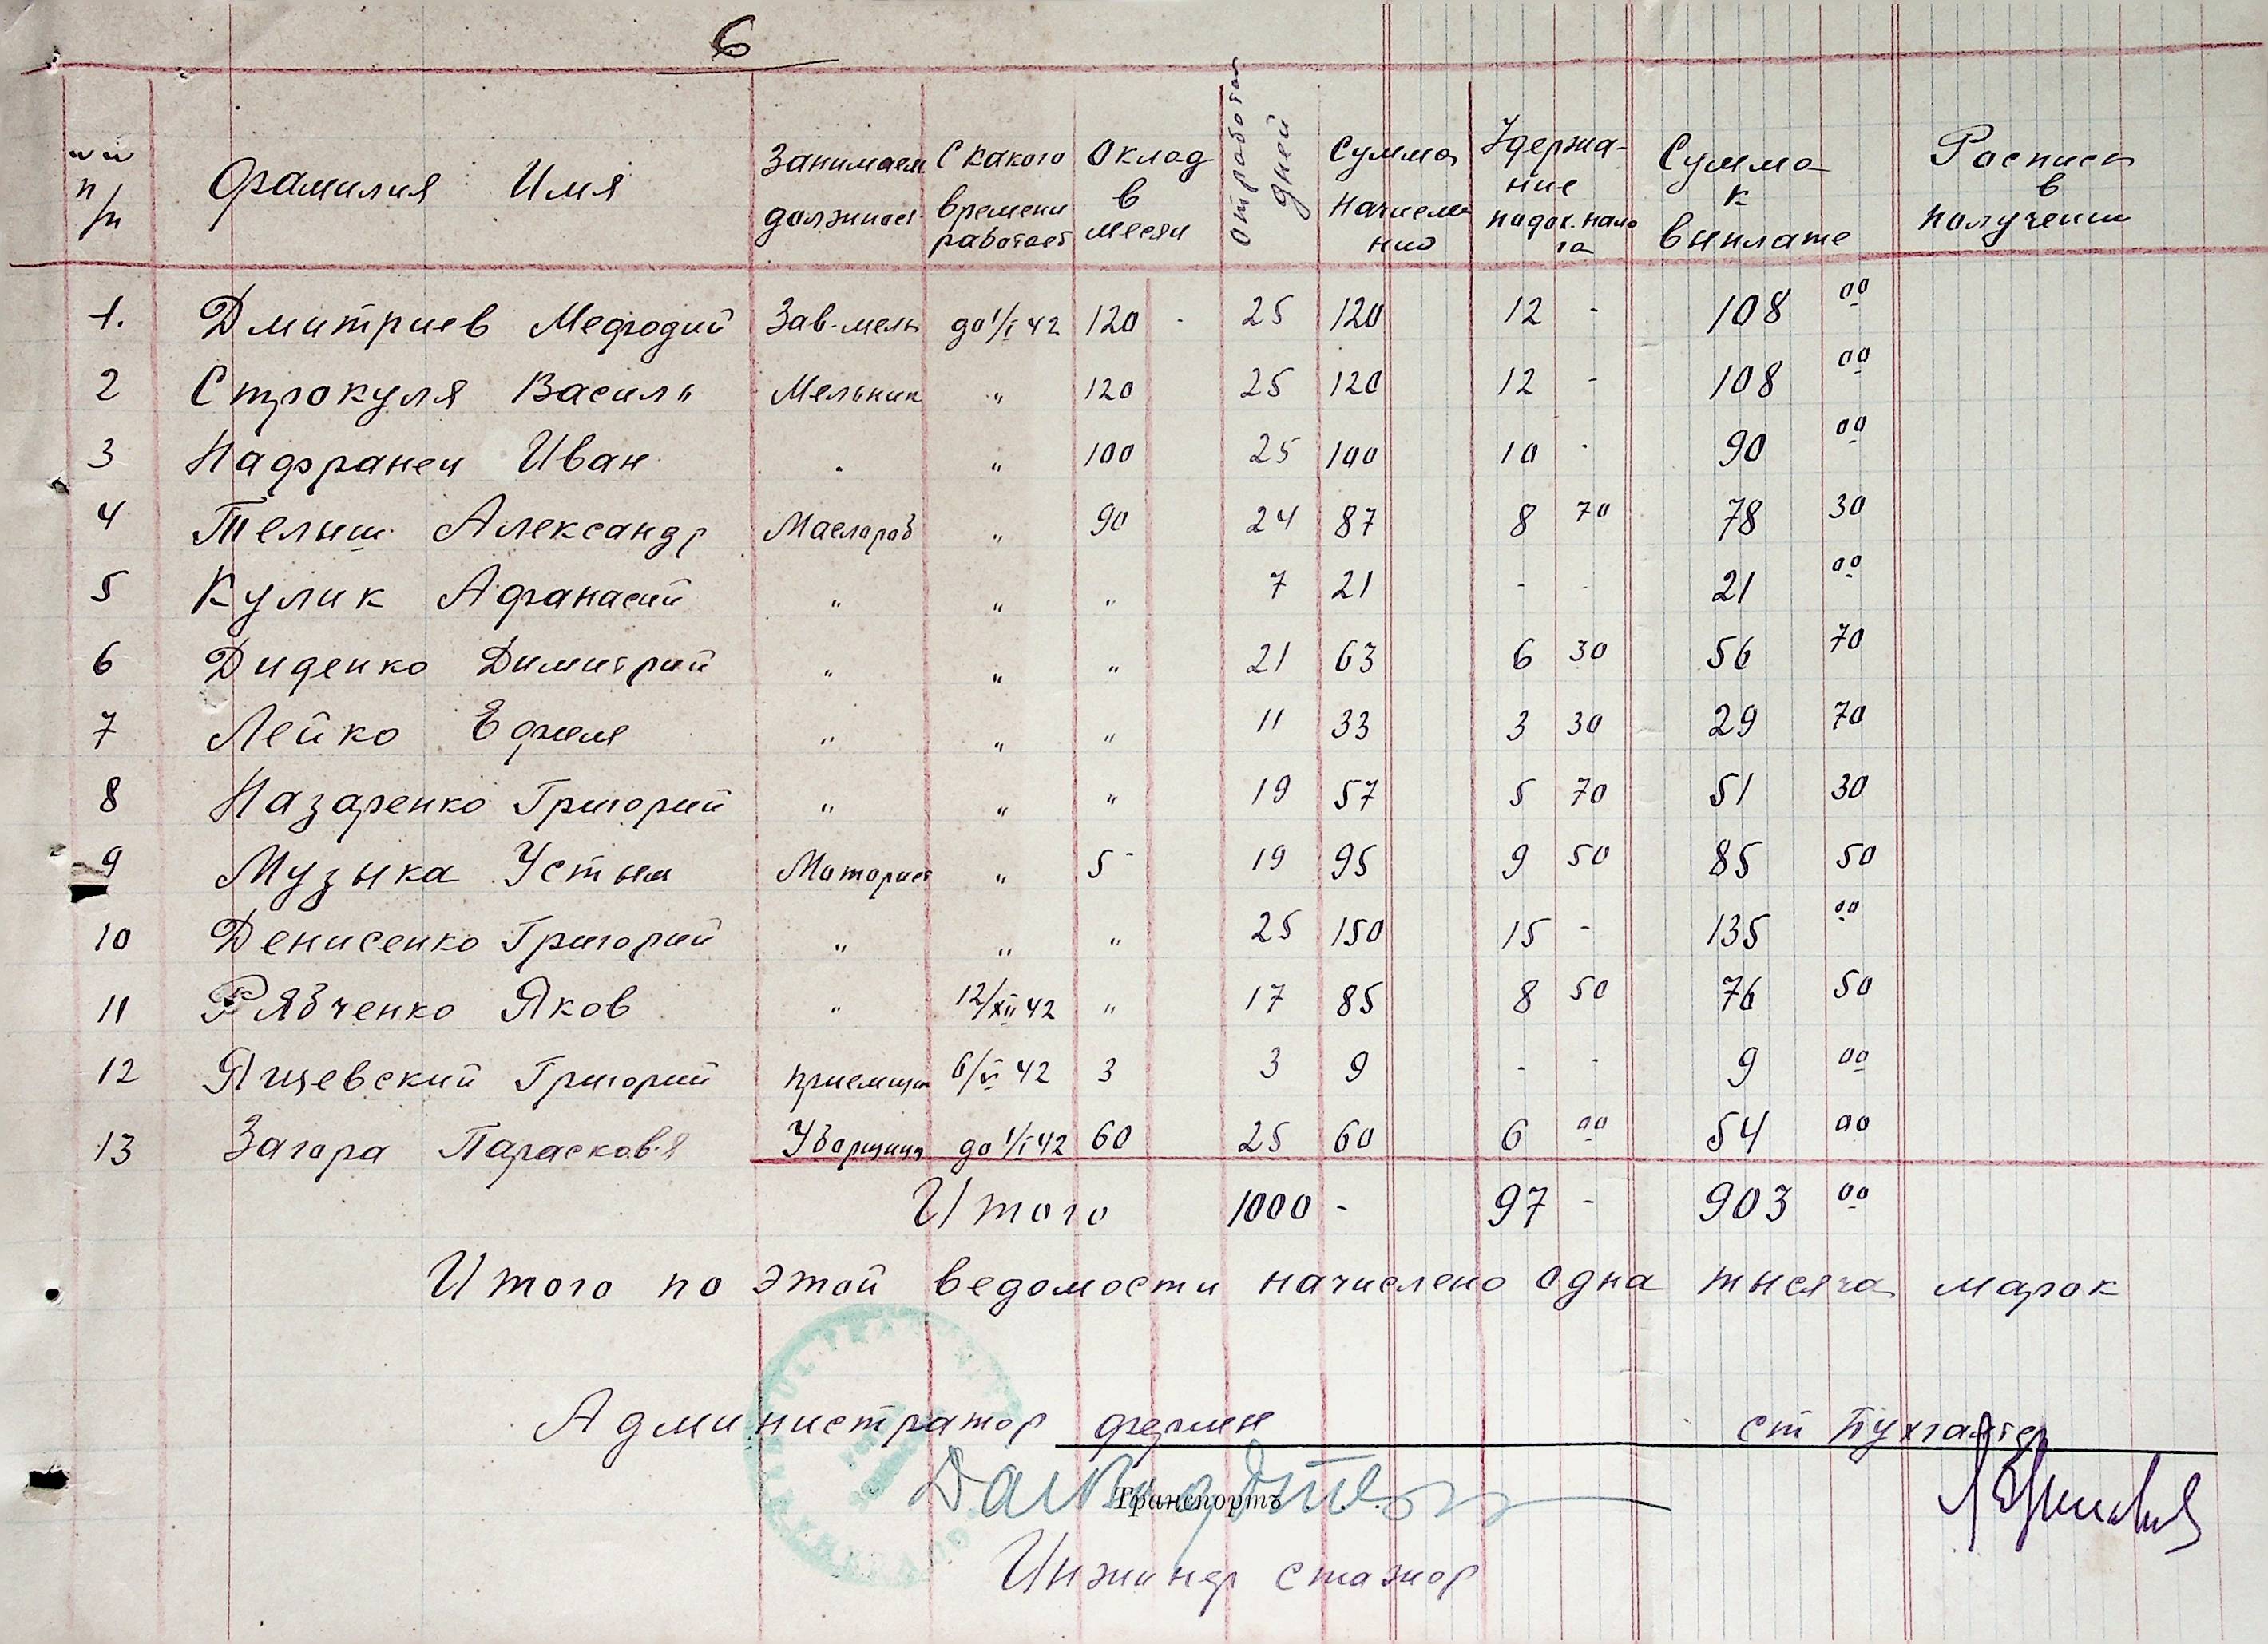 6
№№ п/п Фамилия Имя Занимаем должност С какого времени работает Оклад в месяц Отработан дней Сумма начислено Удержание подох. налога Сумма к выплате Расписка в получении
1. Дмитриев Мефодий Зав-мель до 1/I 42 120 - 25 120 12 - 108 00
2 Строкуля Василь Мельник " 120 25 120 12 - 108 00
3 Надранец Иван " " 100 25 100 10 - 90 00
4 Телыш Александр Маслороб " 90 24 87 8 70 78 30
5 Кулик Афанасий " " " 7 21 - - 21 00
6 Диденко Димитрий " " " 21 63 6 30 56 70
7 Лейко Ефим " " " 11 33 3 30 29 70
8 Назаренко Григорий " " " 19 57 5 70 51 30
9 Музыка Устым Моторист " 5 - 19 95 9 50 85 50
10 Денисенко Григорий " " " 25 150 15 - 135 00
11 Рябченко Яков " 12/XII 42 " 17 85 8 50 76 50
12 Ящевский Григорий приемщик 6/VI 42 3 3 9 - - 9 00
13 Загора Парасковя Уборщица до 1/I 42 60 25 60 6 00 54 00
Итого 1000 - 97 - 903 00
Итого по этой ведомости начислено одна тысяча марок
Администратор фермы ст Бухгалтер
Транспортъ
Инжинер стажор